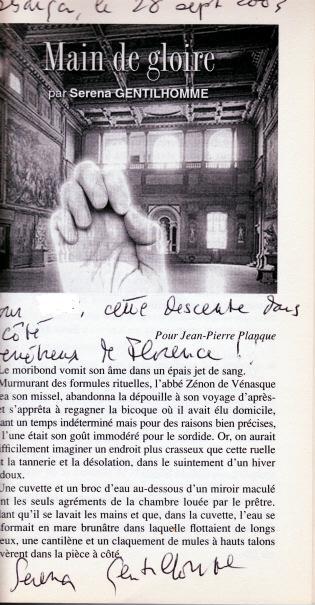 le 28 sept 2005
Main de gloire
par Serena GENTILHOMME
, cette descente dans
côté
Pour Jean-Pierre Planque
de Florence !
Le moribond vomit son âme dans un épais jet de sang.
Murmurant des formules rituelles, l'abbé Zénon de Vénasque
ea son missel, abandonna la dépouille à son voyage d'après-
et s'apprêta à regagner la bicoque où il avait élu domicile,
ant un temps indéterminé mais pour des raisons bien précises,
l'une était son goût immodéré pour le sordide. Or, on aurait
ifficilement imaginer un endroit plus crasseux que cette ruelle
t la tannerie et la désolation, dans le suintement d'un hiver
doux.
Une cuvette et un broc d'eau au-dessous d'un miroir maculé
nt les seuls agréments de la chambre louée par le prêtre.
ant qu'il se lavait les mains et que, dans la cuvette, l'eau se
formait en mare brunâtre dans laquelle flottaient de longs
eux, une cantilène et un claquement de mules à hauts talons
vèrent dans la pièce à côté.
Serena Gentilhomme